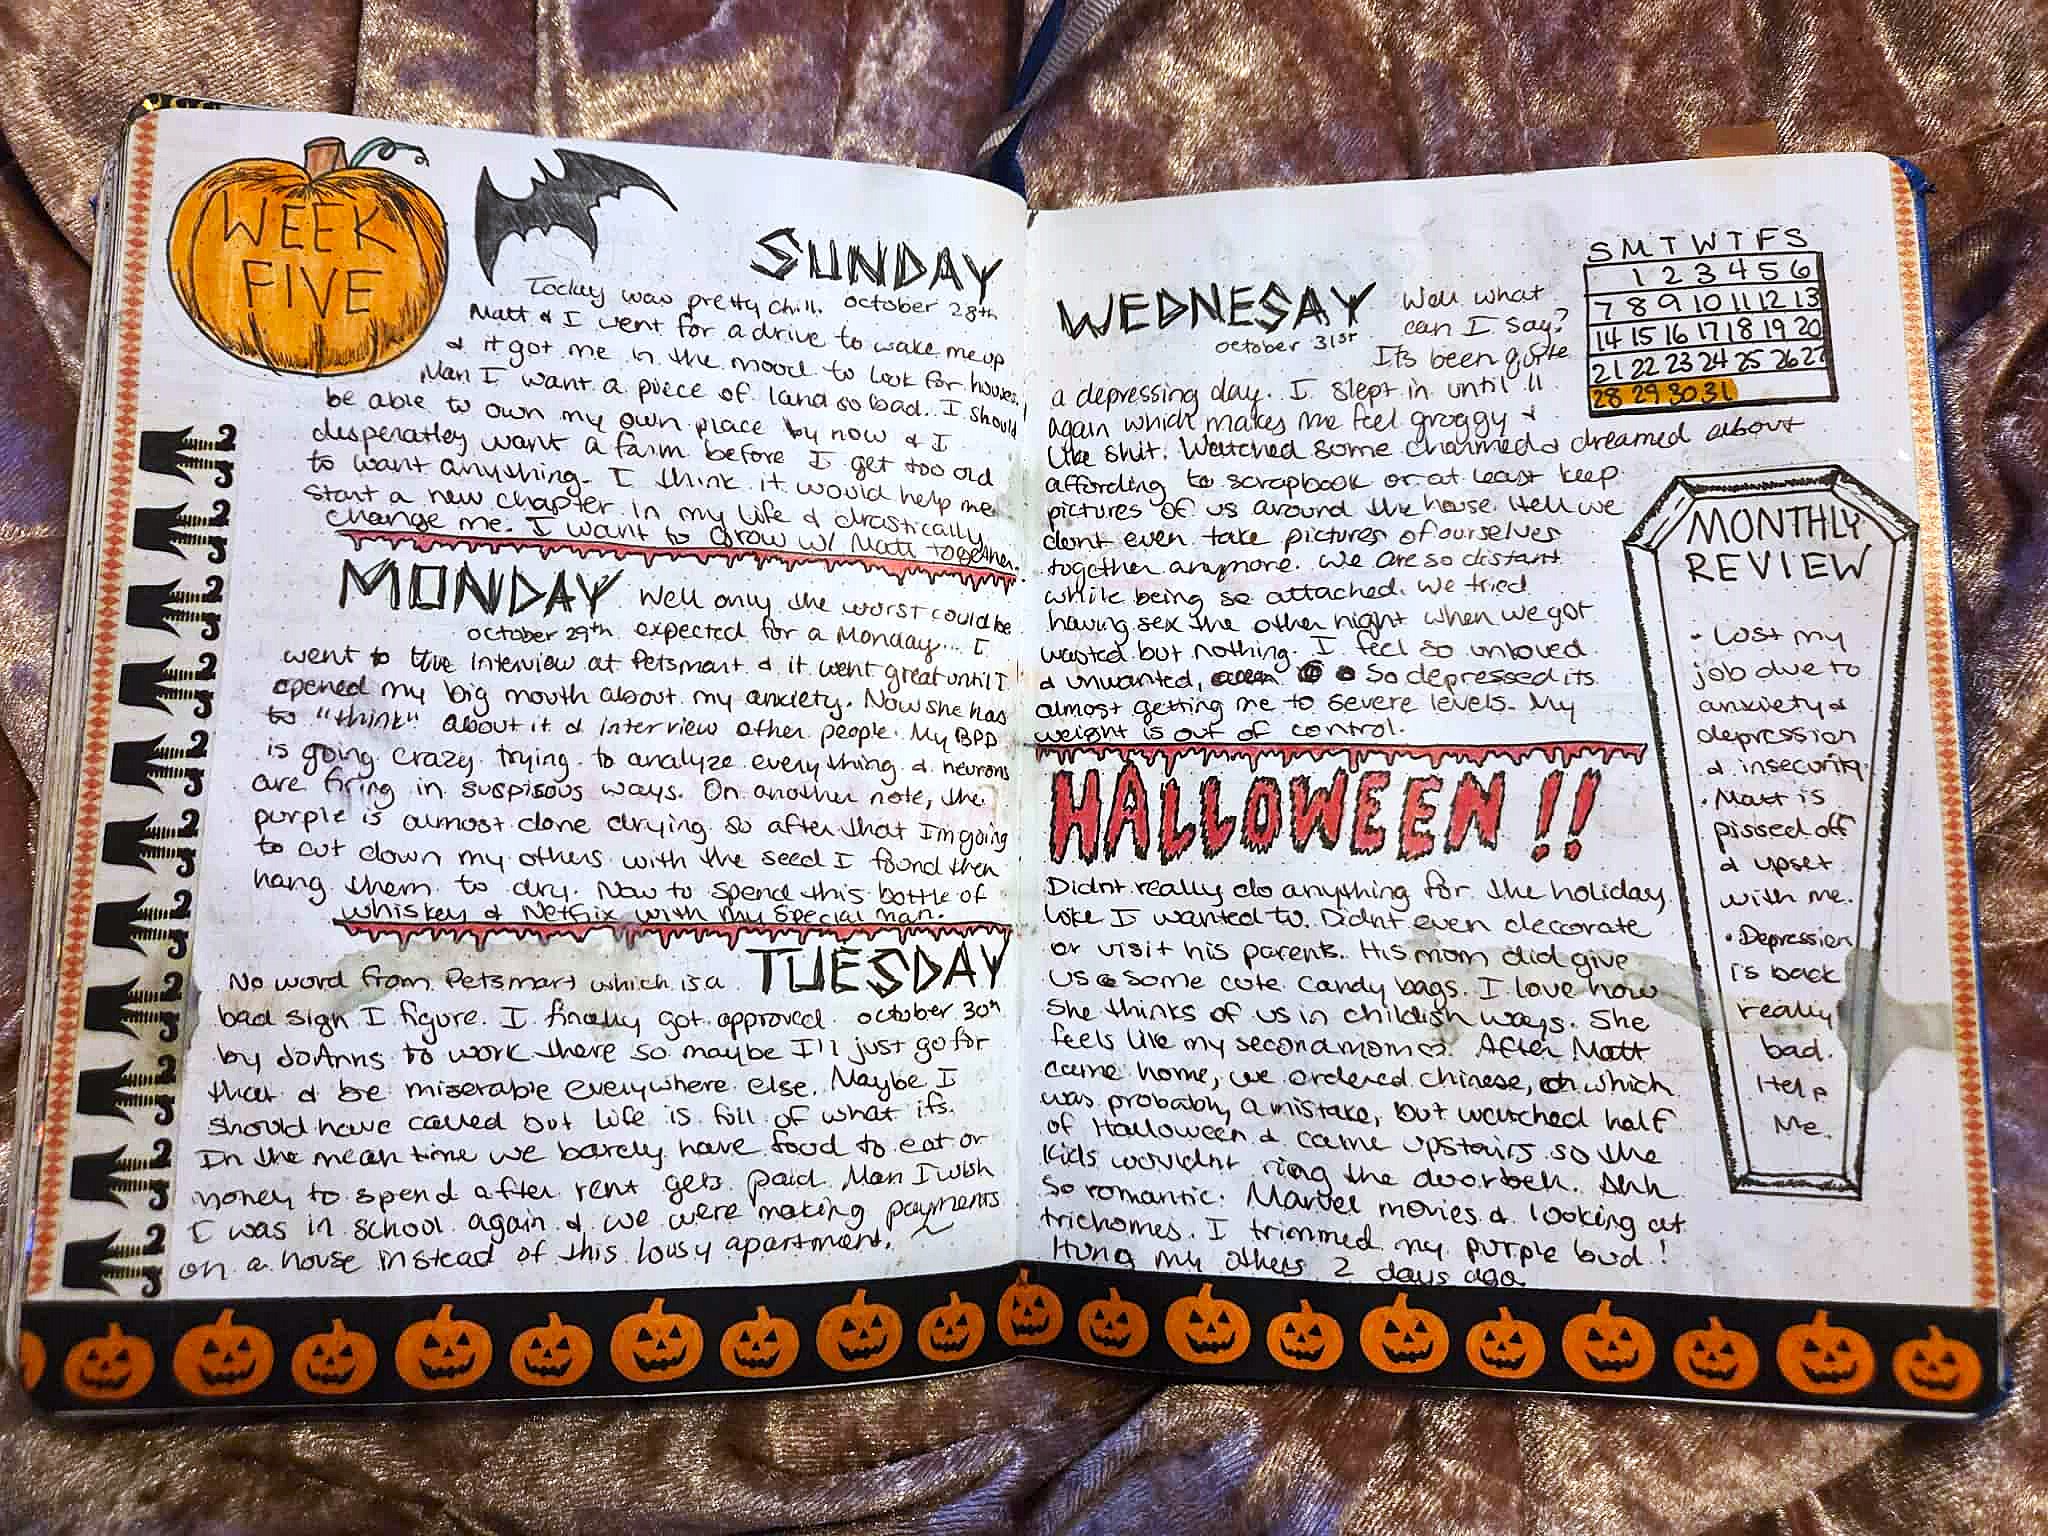 WEEK
FIVE
SUNDAY
october 28th
Today was pretty chill.
Matt & I went for a drive to wake me up
& it got me in the mood to look for houses.
Man I want a piece of land so bad. I should
be able to own my own place by now & I
desperatley want a farm before I get too old
to want anything. I think it would help me
start a new chapter in my life & drastically
change me. I want to grow w/ Matt together.
MONDAY
october 29th
Well only the worst could be
expected for a Monday... I
went to the interview at Petsmart & it went great until I
opened my big mouth about my anxiety. Now she has
to "think" about it & interview other people. My BPD
is going crazy trying to analyze everything & neurons
are firing in suspisous ways. On another note, the
purple is almost done drying so after that I'm going
to cut down my others with the seed I found then
hang them to dry. Now to spend this bottle of
whiskey & Netflix with my special man.
TUESDAY
october 30th
No word from Petsmart which is a
bad sign I figure. I finally got approved
by JoAnns to work there so maybe I'll just go for
that & be miserable everywhere else. Maybe I
should have called but life is full of what ifs.
In the mean time we barely have food to eat or
money to spend after rent gets paid. Man I wish
I was in school again & we were making payments
on a house instead of this lousy apartment.
WEDNESAY
october 31st
Well what
can I say?
Its been quite
a depressing day. I slept in until 11
again which makes me feel groggy &
like shit. Watched some charmed & dreamed about
affording to scrapbook or at least keep
pictures of us around the house. Hell we
dont even take pictures of ourselves
together anymore. We are so distant
while being so attached. We tried
having sex the other night when we got
wasted but nothing. I feel so unloved
& unwanted, So depressed its
almost getting me to severe levels. My
weight is out of control.
HALLOWEEN!!
Didnt really do anything for the holiday
like I wanted to. Didnt even decorate
or visit his parents. His mom did give
us some cute candy bags. I love how
she thinks of us in childish ways. She
feels like my second mom ♡. After Matt
came home, we ordered chinese, which
was probably a mistake, but watched half
of Halloween & came upstairs so the
kids wouldnt ring the doorbell. Ahh
so romantic. Marvel movies & looking at
trichomes. I trimmed my purple bud!
Hung my others 2 days ago
S M T W T F S
1 2 3 4 5 6
7 8 9 10 11 12 13
14 15 16 17 18 19 20
21 22 23 24 25 26 27
28 29 30 31
MONTHLY
REVIEW
• Lost my
job due to
anxiety &
depression
& insecurity
• Matt is
pissed off
& upset
with me.
• Depression
is back
really
bad.
Help
Me.